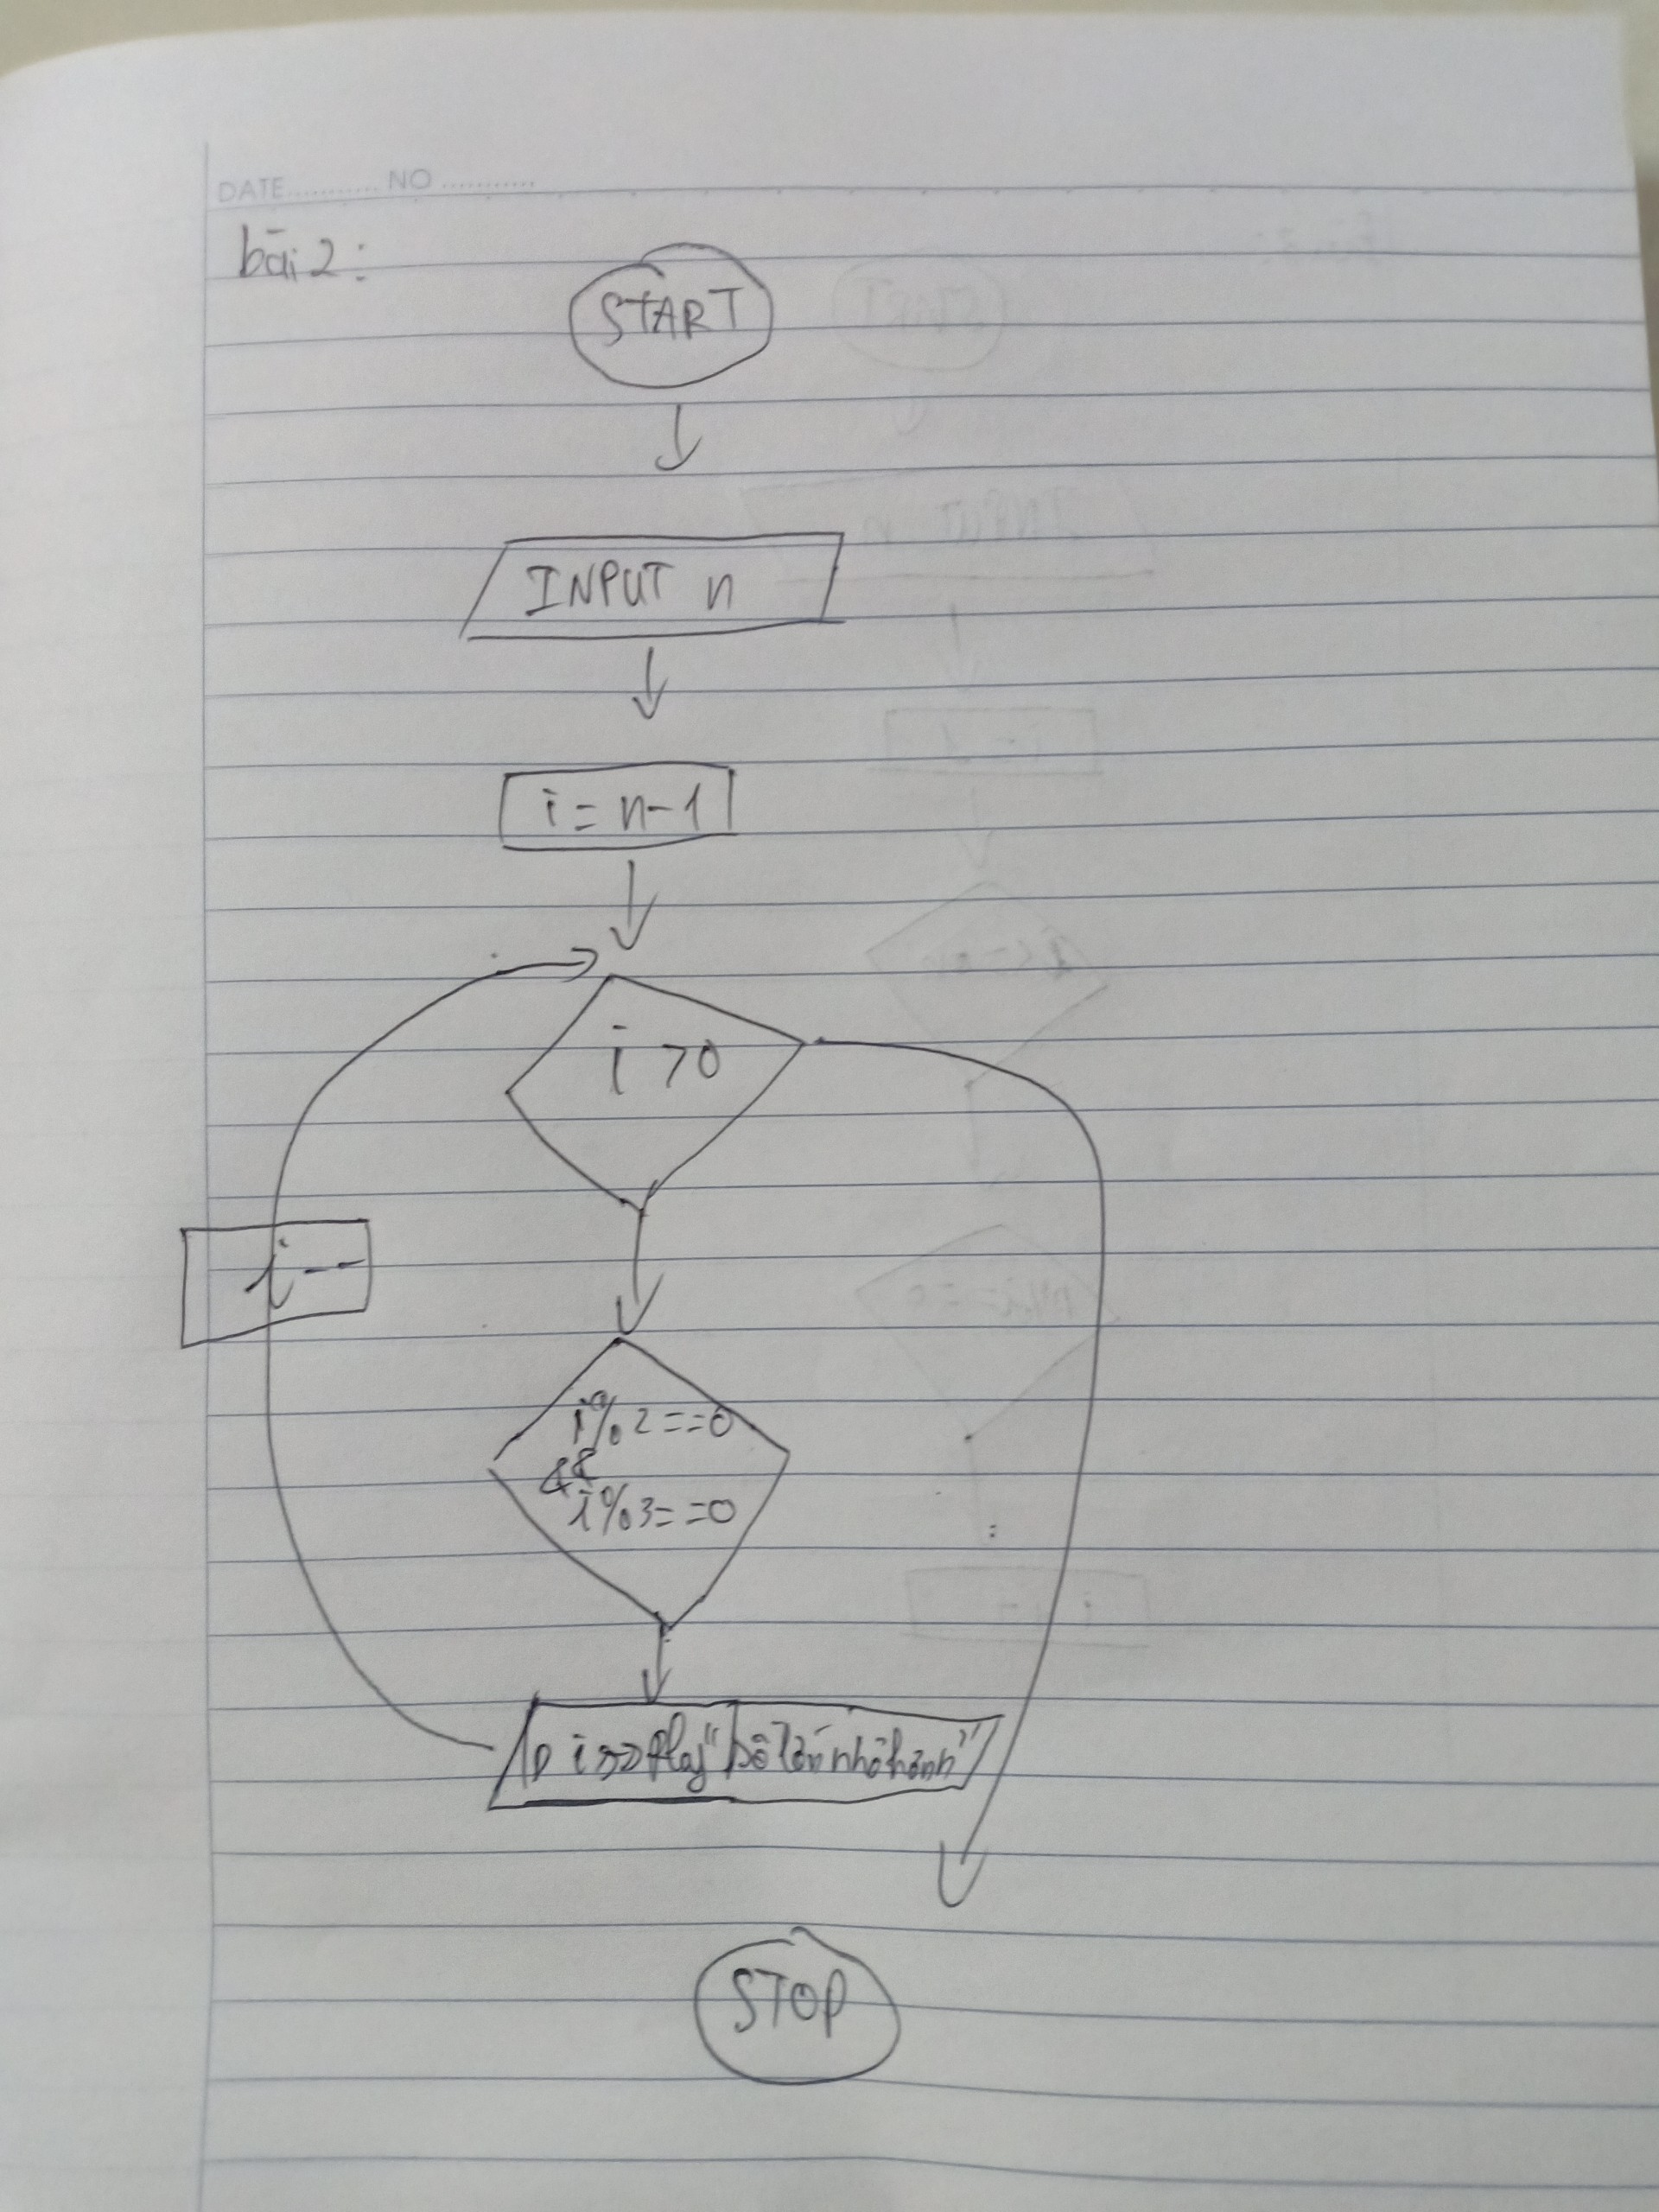 DATE............ NO ............
bài 2:
START
INPUT n
i = n-1
i >0
i--
i%2==0
&&
i%3==0
Display "số lớn nhỏ hơn n"
STOP